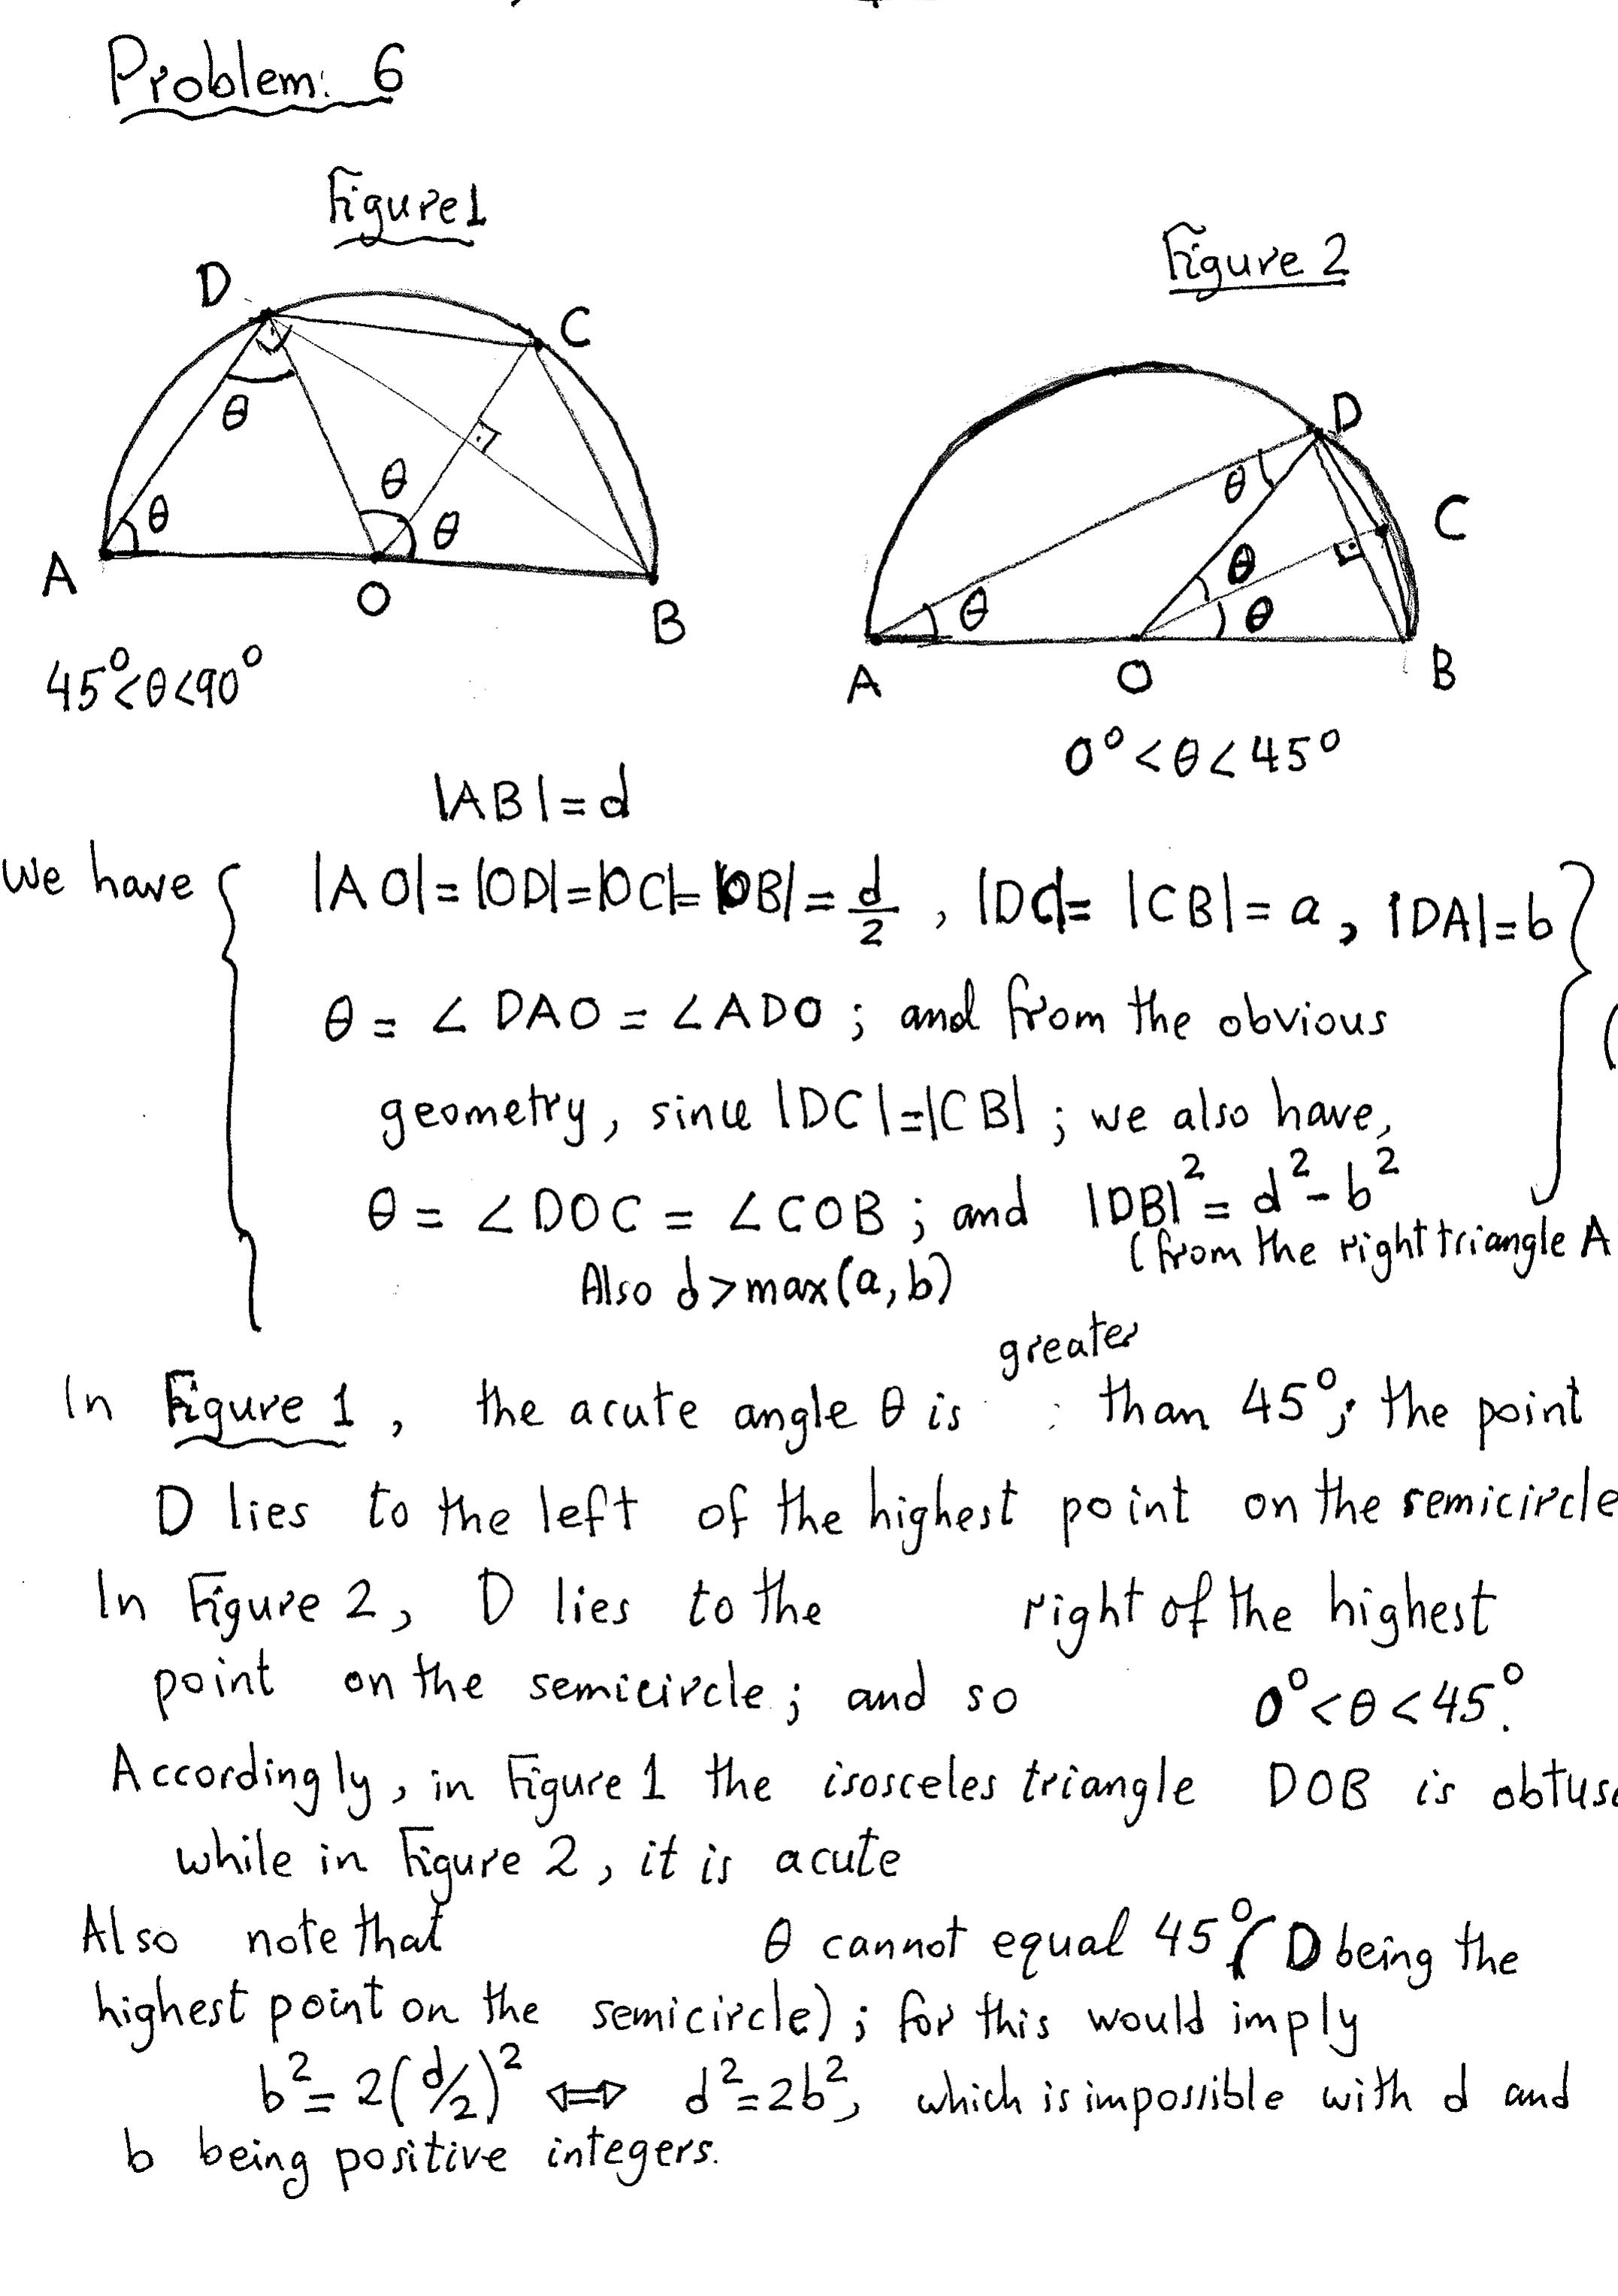 Problem: 6
Figure 1
Figure 2
D
C
θ
θ
θ
θ
A
O
B
45° < θ < 90°
D
C
θ
θ
θ
θ
A
O
B
0° < θ < 45°
|AB| = d
We have { |AO| = |OD| = |OC| = |OB| = d/2 , |DC| = |CB| = a , |DA| = b }
θ = ∠ DAO = ∠ ADO ; and from the obvious (
geometry, since |DC| = |CB| ; we also have,
θ = ∠ DOC = ∠ COB ; and |DB|² = d² - b²
(from the right triangle A
Also d > max(a, b)
In Figure 1 , the acute angle θ is greater than 45°; the point
D lies to the left of the highest point on the semicircle
In Figure 2, D lies to the right of the highest
point on the semicircle ; and so 0° < θ < 45°.
Accordingly, in Figure 1 the isosceles triangle DOB is obtuse
while in Figure 2, it is acute
Also note that θ cannot equal 45° ( D being the
highest point on the semicircle) ; for this would imply
b² = 2(d/2)² ⟺ d² = 2b², which is impossible with d and
b being positive integers.